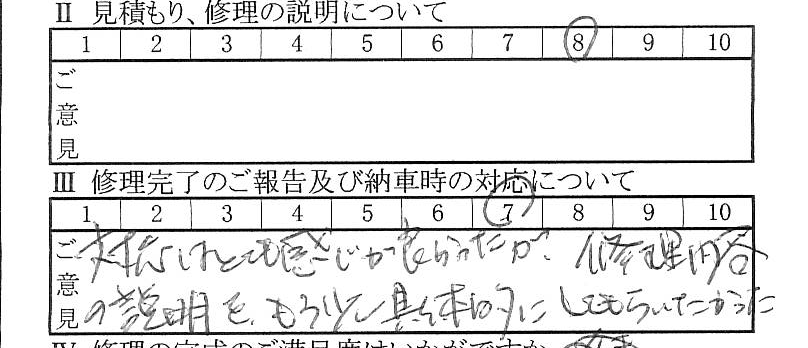 Ⅱ 見積もり、修理の説明について
1 2 3 4 5 6 7 8 9 10
ご意見
Ⅲ 修理完了のご報告及び納車時の対応について
1 2 3 4 5 6 7 8 9 10
ご意見
対応はとても感じが良かったが、修理内容
の説明を、もう少し具体的にしてもらいたかった
Ⅳ 修理の完成のご満足度はいかがですか